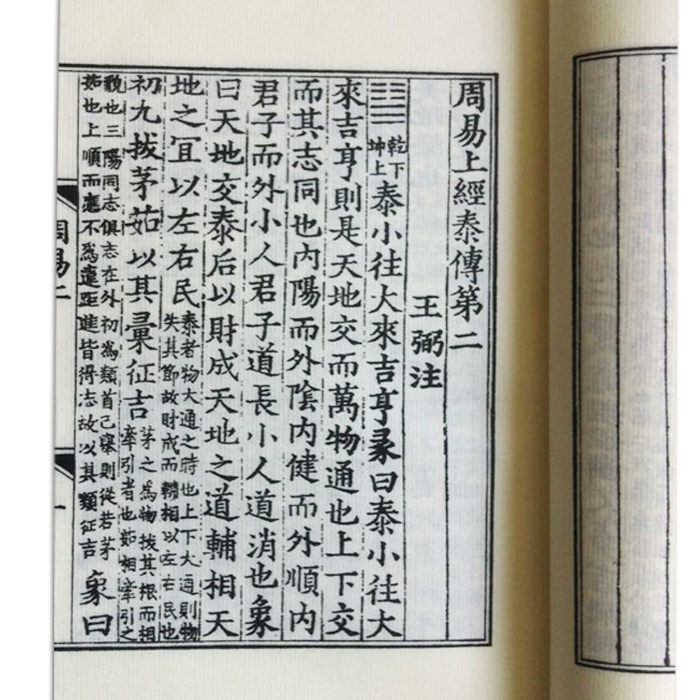 周易上經泰傳第二
王弼注
䷊乾下坤上泰小往大來吉亨彖曰泰小往大
來吉亨則是天地交而萬物通也上下交
而其志同也内陽而外陰内健而外順内
君子而外小人君子道長小人道消也象
曰天地交泰后以財成天地之道輔相天
地之宜以左右民泰者物大通之時也上下大通則物失其節故財成而輔相以左右民也
初九拔茅茹以其彙征吉茅之為物拔其根而相牽引者也茹相牽引之
貌也三陽同志俱志在外初為類首己舉則從若茅茹也上順而應不為違距進皆得志故以其類征吉象曰
周易二
一